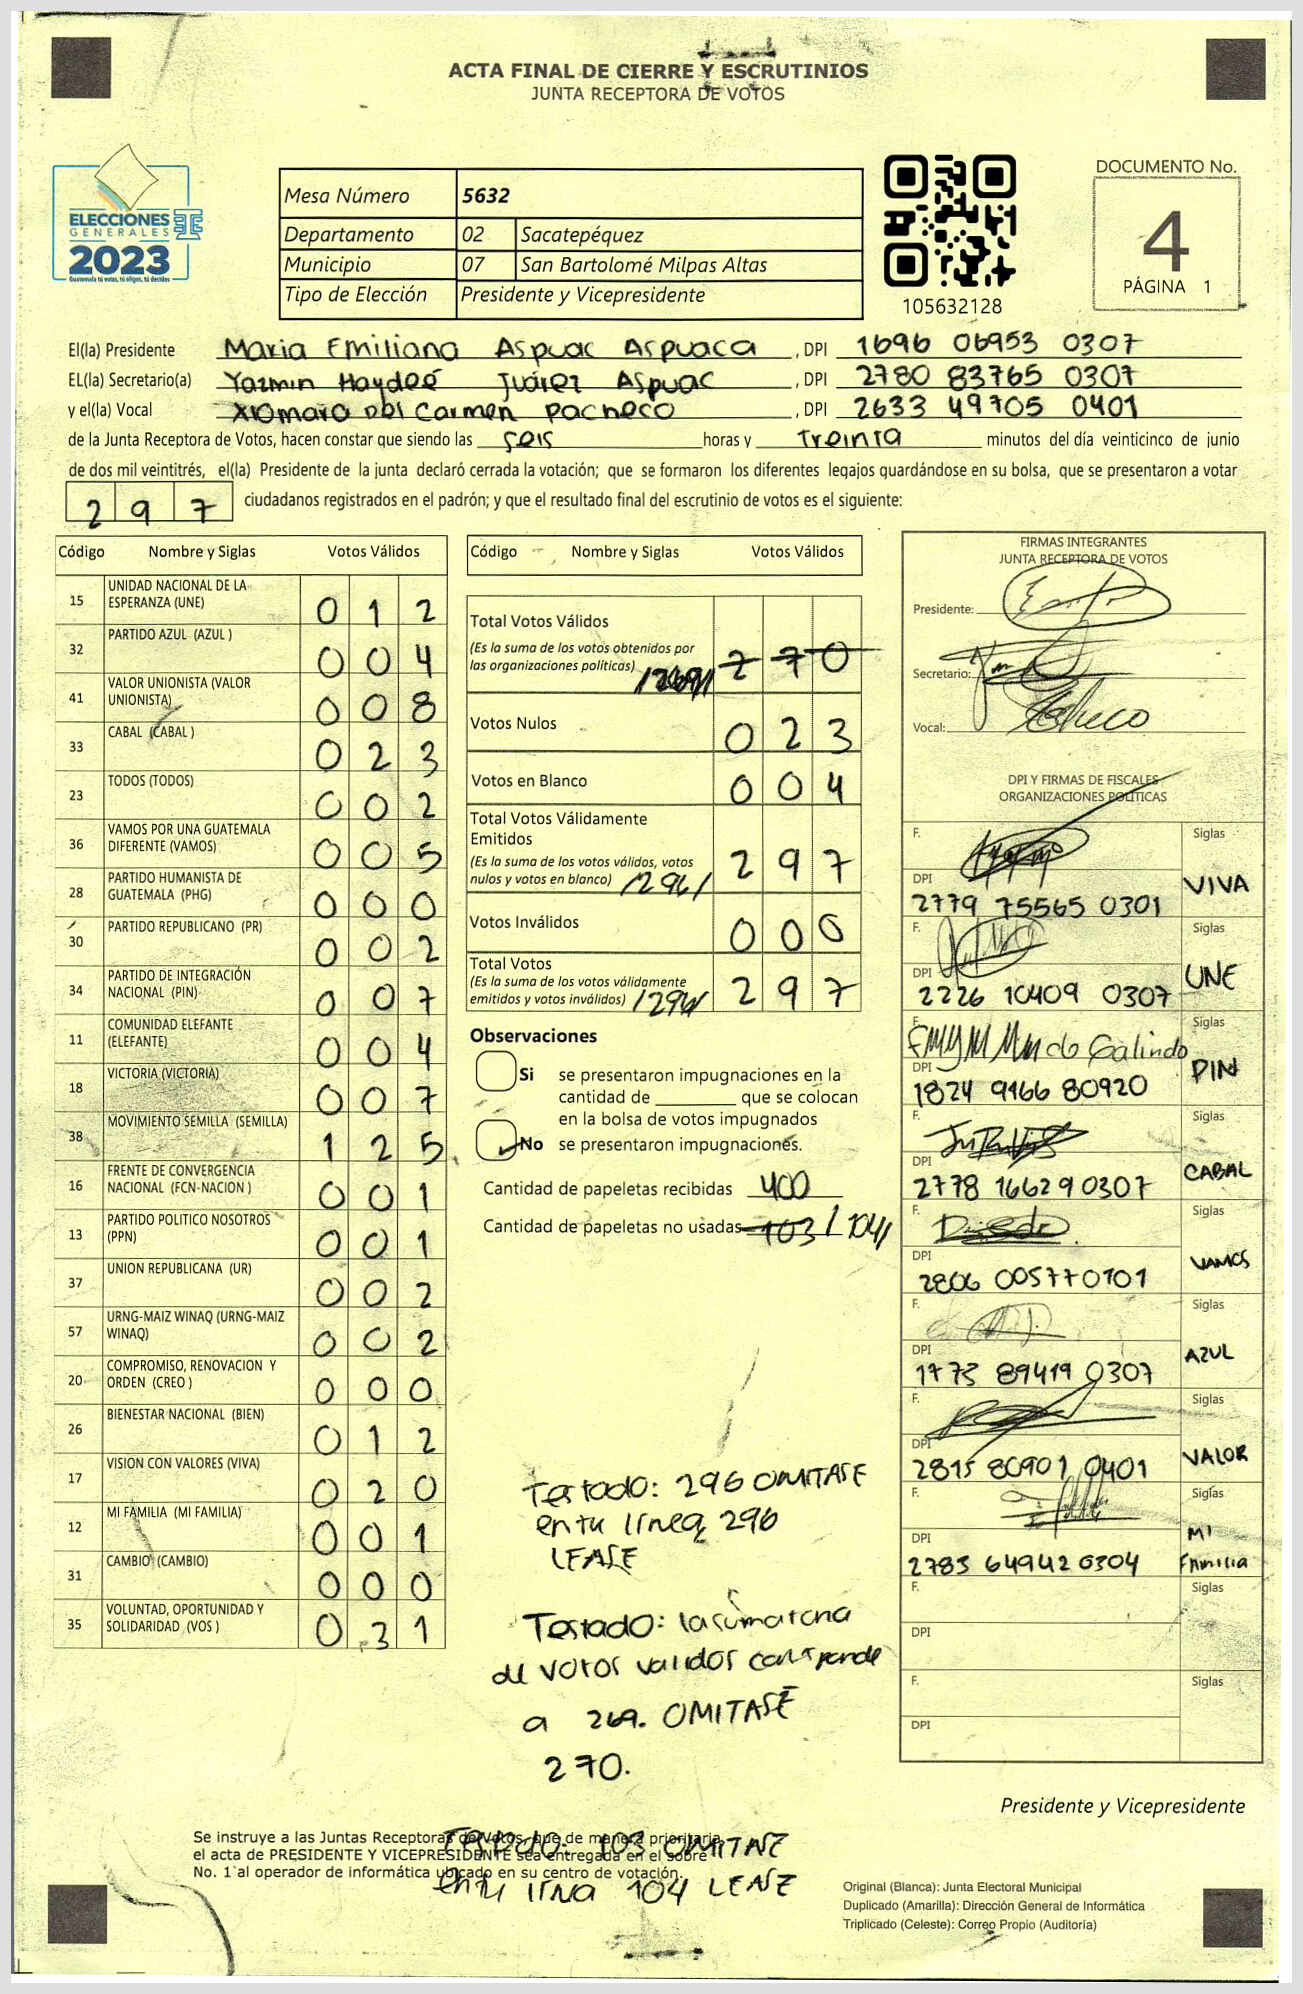 ACTA FINAL DE CIERRE Y ESCRUTINIOS
JUNTA RECEPTORA DE VOTOS
ELECCIONES
GENERALES
2023
Guatemala tú votas, tú eliges, tú decides
Mesa Número 5632
Departamento 02 Sacatepéquez
Municipio 07 San Bartolomé Milpas Altas
Tipo de Elección Presidente y Vicepresidente
105632128
DOCUMENTO No.
4
PÁGINA 1
El(la) Presidente Maria Emiliana Aspuac Aspuaca , DPI 1696 06953 0307
EL(la) Secretario(a) Yazmin Haydeé Juárez Aspuac , DPI 2780 83765 0307
y el(la) Vocal Xiomara Del Carmen Pacheco , DPI 2633 49705 0401
de la Junta Receptora de Votos, hacen constar que siendo las seis horas y treinta minutos del día veinticinco de junio
de dos mil veintitrés, el(la) Presidente de la junta declaró cerrada la votación; que se formaron los diferentes legajos guardándose en su bolsa, que se presentaron a votar
297 ciudadanos registrados en el padrón; y que el resultado final del escrutinio de votos es el siguiente:
Código Nombre y Siglas Votos Válidos
15 UNIDAD NACIONAL DE LA ESPERANZA (UNE) 0 1 2
32 PARTIDO AZUL (AZUL ) 0 0 4
41 VALOR UNIONISTA (VALOR UNIONISTA) 0 0 8
33 CABAL (CABAL ) 0 2 3
23 TODOS (TODOS) 0 0 2
36 VAMOS POR UNA GUATEMALA DIFERENTE (VAMOS) 0 0 5
28 PARTIDO HUMANISTA DE GUATEMALA (PHG) 0 0 0
30 PARTIDO REPUBLICANO (PR) 0 0 2
34 PARTIDO DE INTEGRACIÓN NACIONAL (PIN) 0 0 7
11 COMUNIDAD ELEFANTE (ELEFANTE) 0 0 4
18 VICTORIA (VICTORIA) 0 0 7
38 MOVIMIENTO SEMILLA (SEMILLA) 1 2 5
16 FRENTE DE CONVERGENCIA NACIONAL (FCN-NACION ) 0 0 1
13 PARTIDO POLITICO NOSOTROS (PPN) 0 0 1
37 UNION REPUBLICANA (UR) 0 0 2
57 URNG-MAIZ WINAQ (URNG-MAIZ WINAQ) 0 0 2
20 COMPROMISO, RENOVACION Y ORDEN (CREO ) 0 0 0
26 BIENESTAR NACIONAL (BIEN) 0 1 2
17 VISION CON VALORES (VIVA) 0 2 0
12 MI FAMILIA (MI FAMILIA) 0 0 1
31 CAMBIO (CAMBIO) 0 0 0
35 VOLUNTAD, OPORTUNIDAD Y SOLIDARIDAD (VOS ) 0 3 1
Código Nombre y Siglas Votos Válidos
Total Votos Válidos
(Es la suma de los votos obtenidos por
las organizaciones políticas) /269/ 2 7 0
Votos Nulos 0 2 3
Votos en Blanco 0 0 4
Total Votos Válidamente
Emitidos
(Es la suma de los votos válidos, votos
nulos y votos en blanco) /296/ 2 9 7
Votos Inválidos 0 0 0
Total Votos
(Es la suma de los votos válidamente
emitidos y votos inválidos) /296/ 2 9 7
Observaciones
Si se presentaron impugnaciones en la
cantidad de ________ que se colocan
en la bolsa de votos impugnados
No se presentaron impugnaciones.
Cantidad de papeletas recibidas 400
Cantidad de papeletas no usadas 103 / 104/
Testado: 296 OMITASE
en tu linea 296
LEASE
Testado: la suma
de votos validos corresponde
a 269. OMITASE
270.
Testado: 103 OMITASE
entu lina 104 LEASE
FIRMAS INTEGRANTES
JUNTA RECEPTORA DE VOTOS
Presidente:
Secretario:
Vocal: Pacheco
DPI Y FIRMAS DE FISCALES
ORGANIZACIONES POLÍTICAS
F. Siglas
DPI 2779 75565 0301 VIVA
F. Siglas
DPI 2226 10409 0307 UNE
F. Galindo Siglas
DPI 1824 9166 80920 PIN
F. Siglas
DPI 2778 16629 0307 CABAL
F. Siglas
DPI 2806 00577 0101 VAMOS
F. Siglas
DPI 1773 89419 0307 AZUL
F. Siglas
DPI 2815 80901 0401 VALOR
F. Siglas
DPI 2783 64942 0304 MI Familia
F. Siglas
DPI
F. Siglas
DPI
Presidente y Vicepresidente
Se instruye a las Juntas Receptoras de Votos, que de manera prioritaria
el acta de PRESIDENTE Y VICEPRESIDENTE sea entregada en el sobre
No. 1 al operador de informática ubicado en su centro de votación.
Original (Blanca): Junta Electoral Municipal
Duplicado (Amarilla): Dirección General de Informática
Triplicado (Celeste): Correo Propio (Auditoría)